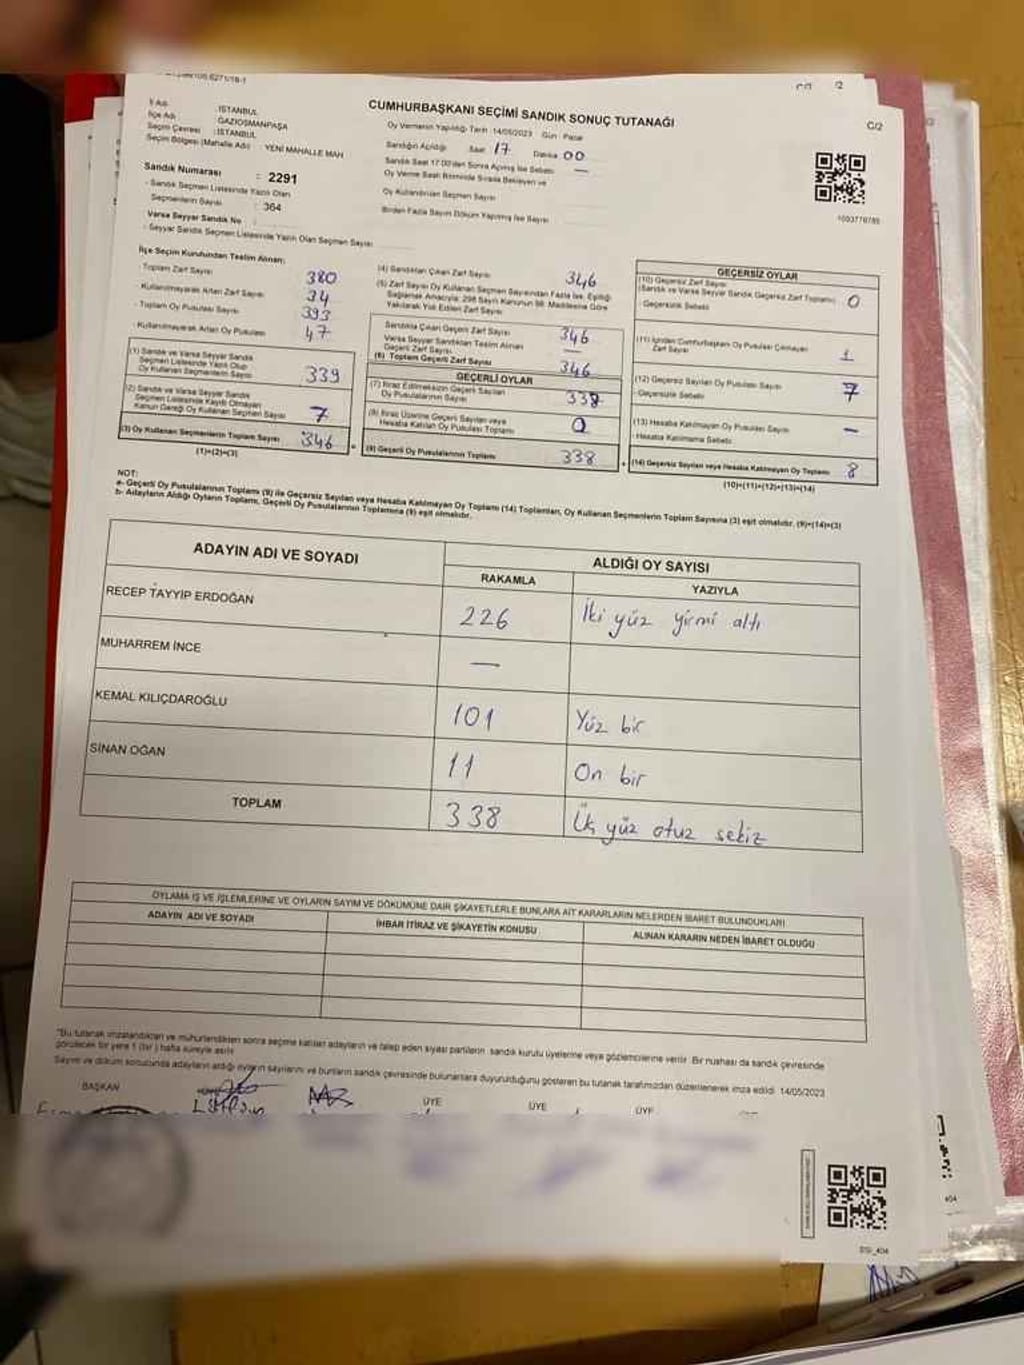 C/2
CUMHURBAŞKANI SEÇİMİ SANDIK SONUÇ TUTANAĞI
İl Adı : İSTANBUL
İlçe Adı : GAZİOSMANPAŞA
Seçim Çevresi : İSTANBUL
Seçim Bölgesi (Mahalle Adı) : YENİ MAHALLE MAH
Sandık Numarası : 2291
- Sandık Seçmen Listesinde Yazılı Olan
Seçmenlerin Sayısı : 364
Varsa Seyyar Sandık No :
- Seyyar Sandık Seçmen Listesinde Yazılı Olan Seçmen Sayısı
Oy Vermenin Yapıldığı Tarih : 14/05/2023 Gün : Pazar
Sandığın Açıldığı Saat 17 Dakika 00
Sandık Saat 17:00'den Sonra Açılmış İse Sebebi —
Oy Verme Saati Bitiminde Sırada Bekleyen ve
Oy Kullandırılan Seçmen Sayısı
Birden Fazla Sayım Döküm Yapılmış İse Sayısı
1093778785
İlçe Seçim Kurulundan Teslim Alınan:
- Toplam Zarf Sayısı 380
- Kullanılmayarak Artan Zarf Sayısı 34
- Toplam Oy Pusulası Sayısı 393
- Kullanılmayarak Artan Oy Pusulası 47
(1) Sandık ve Varsa Seyyar Sandık
Seçmen Listesinde Yazılı Olup
Oy Kullanan Seçmenlerin Sayısı 339
(2) Sandık ve Varsa Seyyar Sandık
Seçmen Listesinde Kayıtlı Olmayan
Kanun Gereği Oy Kullanan Seçmen Sayısı 7
(3) Oy Kullanan Seçmenlerin Toplam Sayısı 346
(1)+(2)=(3)
(4) Sandıktan Çıkan Zarf Sayısı 346
(5) Zarf Sayısı Oy Kullanan Seçmen Sayısından Fazla İse, Eşitliği
Sağlamak Amacıyla; 298 Sayılı Kanunun 98. Maddesine Göre
Yakılarak Yok Edilen Zarf Sayısı
Sandıkta Çıkan Geçerli Zarf Sayısı 346
Varsa Seyyar Sandıktan Teslim Alınan
Geçerli Zarf Sayısı —
(6) Toplam Geçerli Zarf Sayısı 346
GEÇERLİ OYLAR
(7) İtiraz Edilmeksizin Geçerli Sayılan
Oy Pusulalarının Sayısı 338
(8) İtiraz Üzerine Geçerli Sayılan veya
Hesaba Katılan Oy Pusulası Toplamı 0
(9) Geçerli Oy Pusulalarının Toplamı 338
GEÇERSİZ OYLAR
(10) Geçersiz Zarf Sayısı
(Sandık ve Varsa Seyyar Sandık Geçersiz Zarf Toplamı) 0
- Geçersizlik Sebebi
(11) İçinden Cumhurbaşkanı Oy Pusulası Çıkmayan
Zarf Sayısı 1
(12) Geçersiz Sayılan Oy Pusulası Sayısı 7
- Geçersizlik Sebebi
(13) Hesaba Katılmayan Oy Pusulası Sayısı —
- Hesaba Katılmama Sebebi
(14) Geçersiz Sayılan veya Hesaba Katılmayan Oy Toplamı 8
(10)+(11)+(12)+(13)=(14)
NOT:
a- Geçerli Oy Pusulalarının Toplamı (9) ile Geçersiz Sayılan veya Hesaba Katılmayan Oy Toplamı (14) Toplamları, Oy Kullanan Seçmenlerin Toplam Sayısına (3) eşit olmalıdır. (9)+(14)=(3)
b- Adayların Aldığı Oyların Toplamı, Geçerli Oy Pusulalarının Toplamına (9) eşit olmalıdır.
ADAYIN ADI VE SOYADI ALDIĞI OY SAYISI
RAKAMLA YAZIYLA
RECEP TAYYİP ERDOĞAN 226 İki yüz yirmi altı
MUHARREM İNCE —
KEMAL KILIÇDAROĞLU 101 Yüz bir
SİNAN OĞAN 11 On bir
TOPLAM 338 Üç yüz otuz sekiz
OYLAMA İŞ VE İŞLEMLERİNE VE OYLARIN SAYIM VE DÖKÜMÜNE DAİR ŞİKAYETLERLE BUNLARA AİT KARARLARIN NELERDEN İBARET BULUNDUKLARI
ADAYIN ADI VE SOYADI İHBAR İTİRAZ VE ŞİKAYETİN KONUSU ALINAN KARARIN NEDEN İBARET OLDUĞU
*Bu tutanak imzalandıktan ve mühürlendikten sonra seçime katılan adayların ve talep eden siyasi partilerin sandık kurulu üyelerine veya gözlemcilerine verilir. Bir nüshası da sandık çevresinde
görülecek bir yere 1 (bir) hafta süreyle asılır.
Sayım ve döküm sonucunda adayların aldığı oyların sayılarını ve bunların sandık çevresinde bulunanlara duyurulduğunu gösteren bu tutanak tarafımızdan düzenlenerek imza edildi. 14/05/2023
BAŞKAN ÜYE ÜYE ÜYE